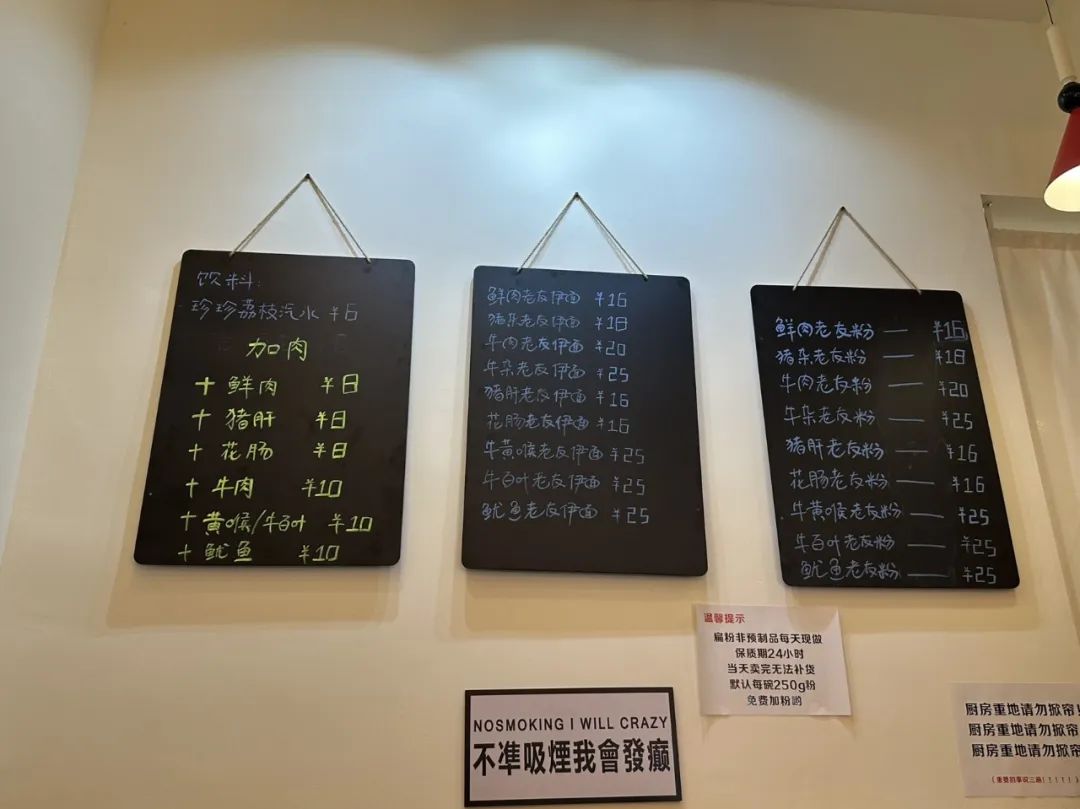 饮料:
珍珍荔枝汽水 ¥6
加肉
+ 鲜肉 ¥8
+ 猪肝 ¥8
+ 花肠 ¥8
+ 牛肉 ¥10
+ 黄喉/牛百叶 ¥10
+ 鱿鱼 ¥10
鲜肉老友伊面 ¥16
猪杂老友伊面 ¥18
牛肉老友伊面 ¥20
牛杂老友伊面 ¥25
猪肝老友伊面 ¥16
花肠老友伊面 ¥16
牛黄喉老友伊面 ¥25
牛百叶老友伊面 ¥25
鱿鱼老友伊面 ¥25
鲜肉老友粉 — ¥16
猪杂老友粉 — ¥18
牛肉老友粉 — ¥20
牛杂老友粉 — ¥25
猪肝老友粉 — ¥16
花肠老友粉 — ¥16
牛黄喉老友粉 — ¥25
牛百叶老友粉 — ¥25
鱿鱼老友粉 — ¥25
温馨提示
扁粉非预制品每天现做
保质期24小时
当天卖完无法补货
默认每碗250g粉
免费加粉哟
NOSMOKING I WILL CRAZY
不凖吸煙我會發癲
厨房重地请勿掀帘!
厨房重地请勿掀帘
厨房重地请勿掀帘
(重要的事说三遍!!!!!)